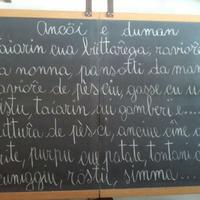 Ancöi e duman
taiarin cua büttarega, raviore
a nonna pansotti da man
raviore de pèsciu, gasse cu u
pistu, taiarin cu gamberi e...
frittura de pèsci, anciue cine a
frite, purpu cue patate, tontani
cuniggiu, rostu, simma....